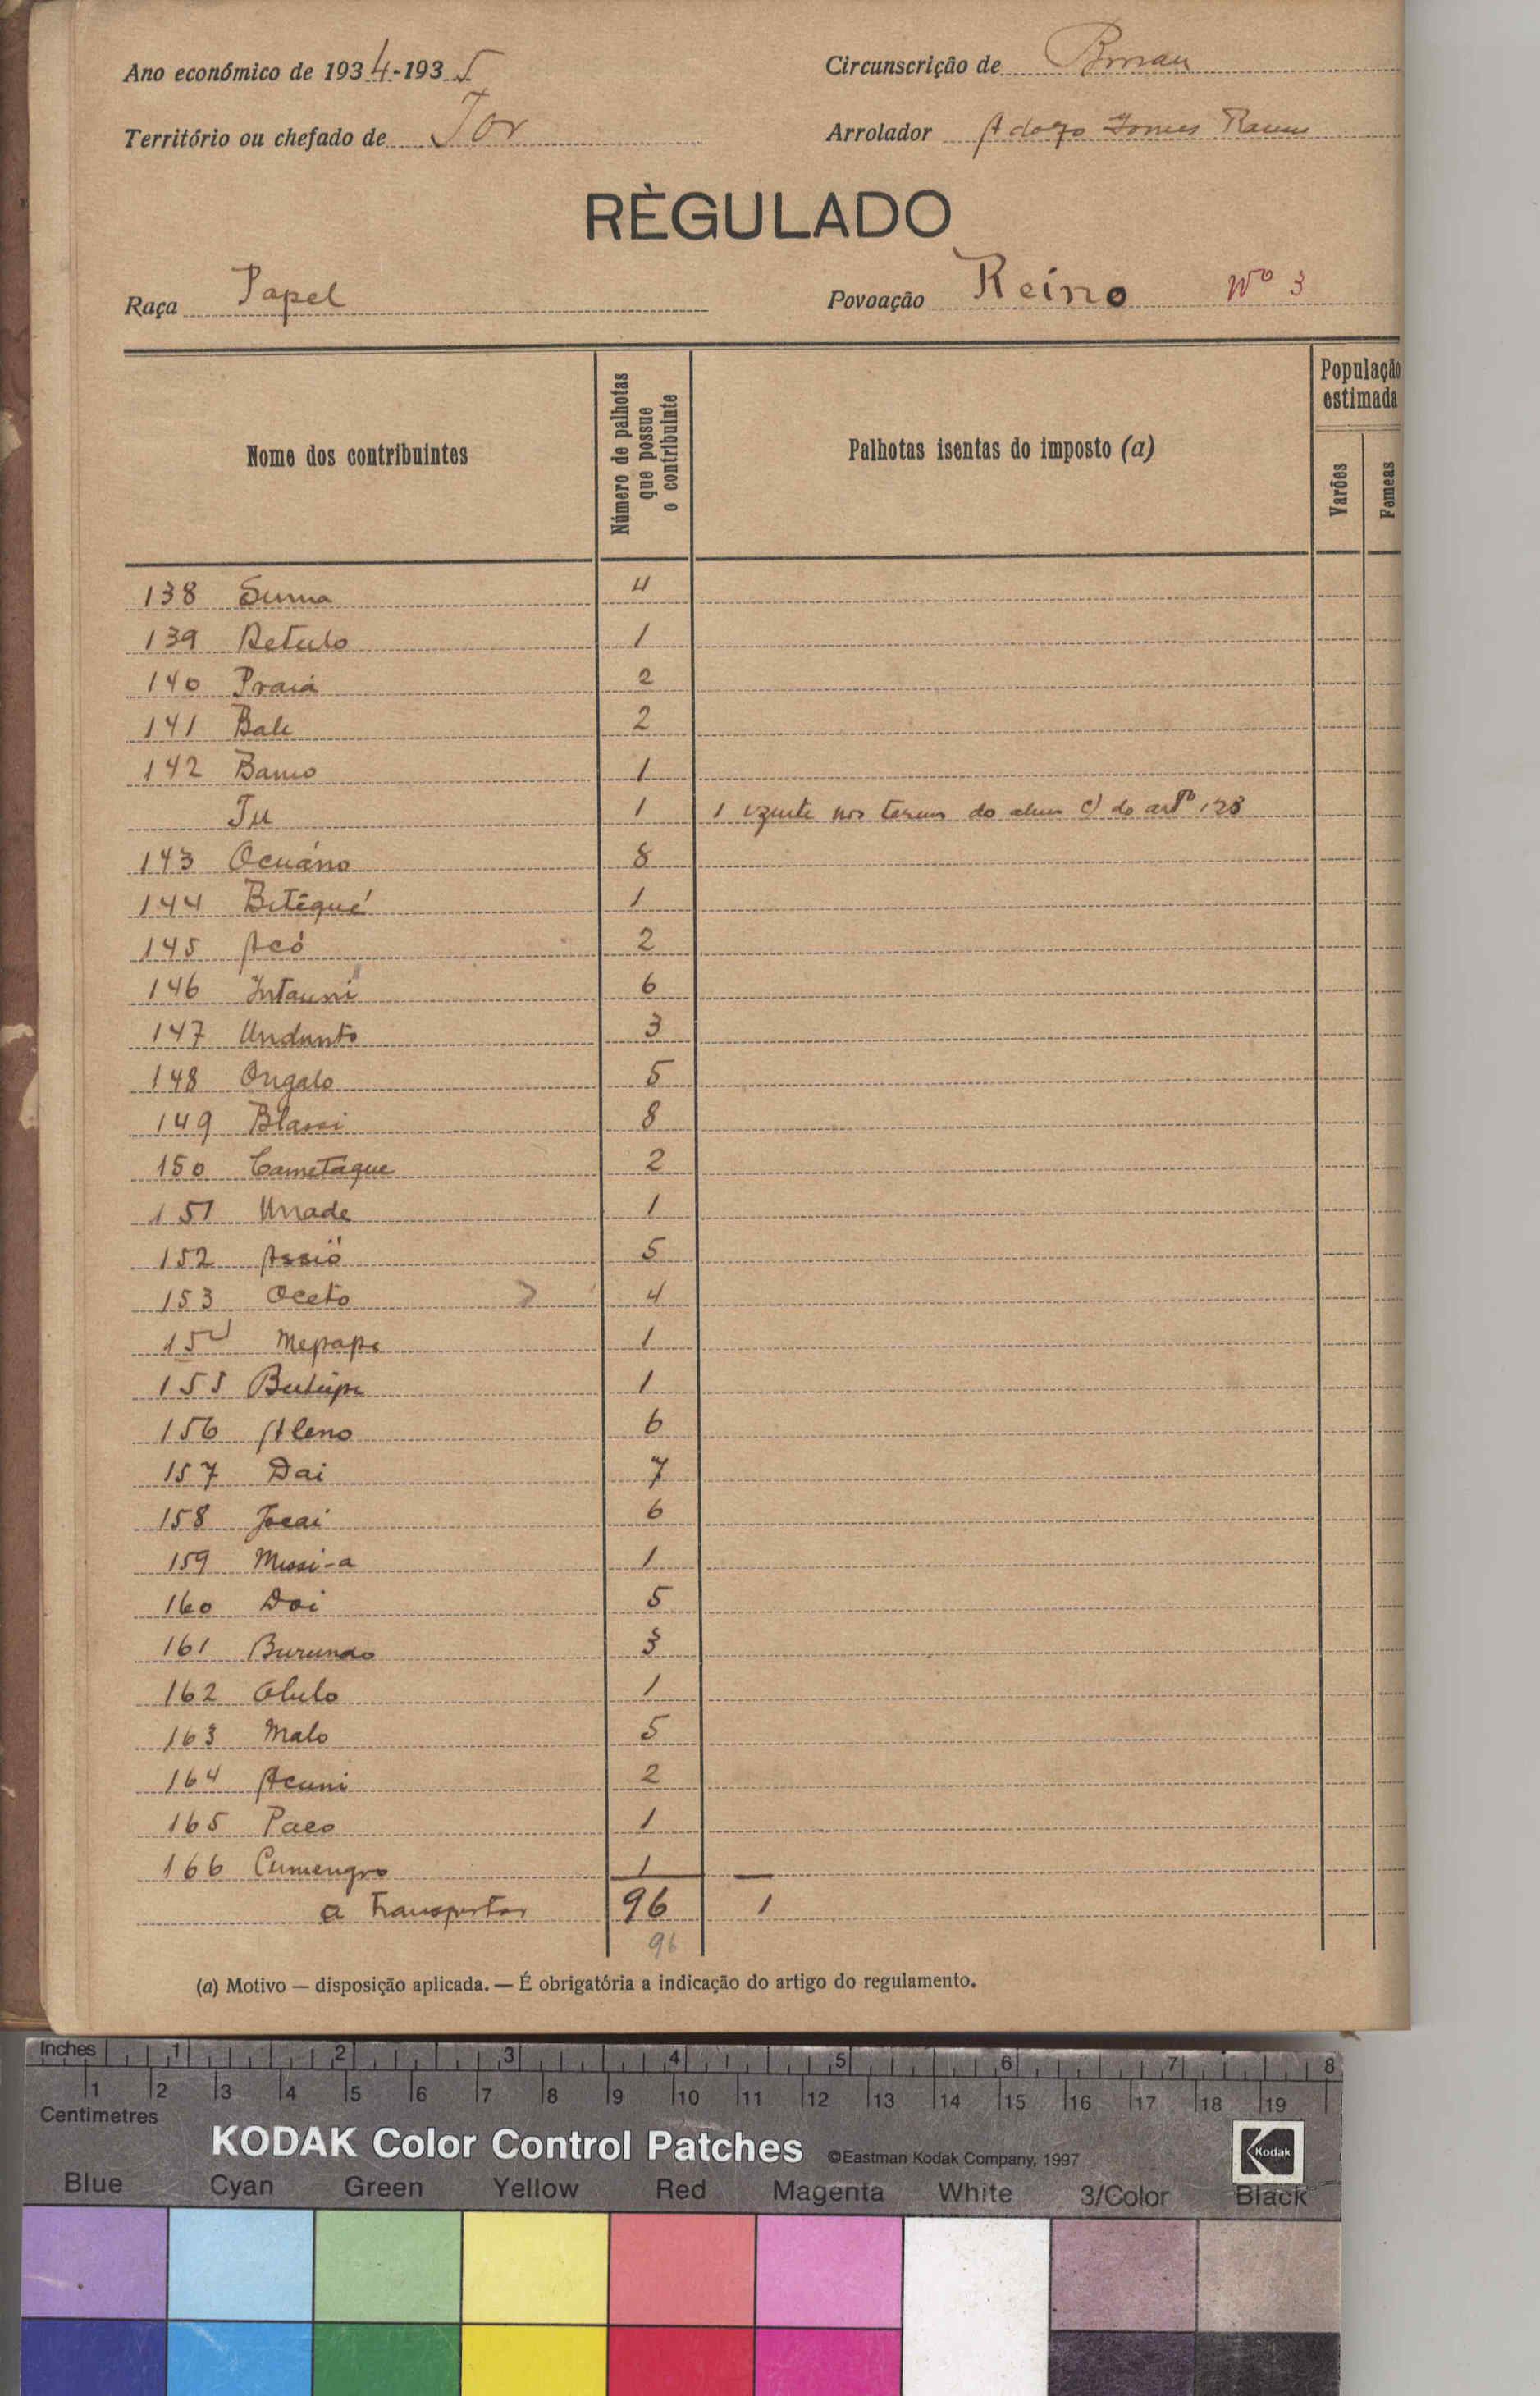 Ano económico de 1934-1935 Circunscrição de
Território ou chefado de Tor Arrolador Gomes
RÈGULADO
Raça Papel Povoação Reino Nº 3
Nome dos contribuintes Número de palhotas que possue o contribuinte Palhotas isentas do imposto (a) População estimada
Varões Femeas
138 Suma 4
139 Betulo 1
140 Praiá 2
141 Bale 2
142 Bamo 1
Tu 1 1 nos do c) do artº 128
143 Ocuáno 8
144 Bitéqué 1
145 Acó 2
146 Intauni 6
147 Undunto 3
148 Ongalo 5
149 Blassi 8
150 Cametaque 2
151 Unade 1
152 Assió 5
153 Oceto 4
154 Mepape 1
155 1
156 Aleno 6
157 Dai 7
158 Jocai 6
159 Mussi-a 1
160 Doi 5
161 Burundo 3
162 Olulo 1
163 Malo 5
164 Acuni 2
165 Paco 1
166 Cumengro 1
a Transportar 96 1
96
(a) Motivo — disposição aplicada. — É obrigatória a indicação do artigo do regulamento.
Inches 1 2 3 4 5 6 7 8
1 2 3 4 5 6 7 8 9 10 11 12 13 14 15 16 17 18 19
Centimetres
KODAK Color Control Patches ©Eastman Kodak Company, 1997 Kodak
Blue Cyan Green Yellow Red Magenta White 3/Color Black